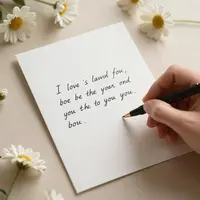 I love 's lawd fou,
boe be the your ond
you the to you you.
bou.